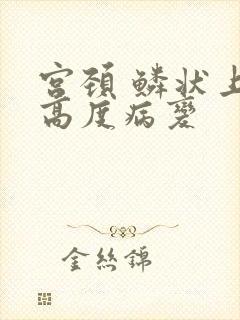 宫颈鳞状上
高度病变
金丝锦